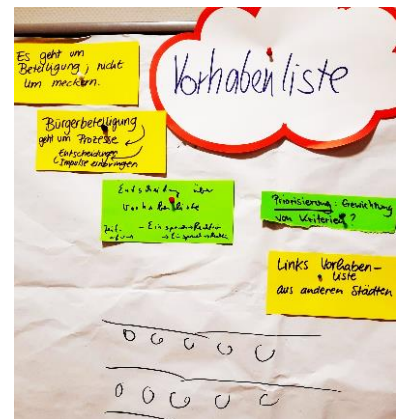 Es geht um
Beteiligung, nicht
um meckern.
Vorhabenliste
Bürgerbeteiligung
geht um Prozesse
Entscheidungs
Impulse einbringen
Entscheidung über
Vorhabenliste
Priorisierung: Gewichtung
von Kriterien?
Links Vorhaben-
liste
aus anderen Städten